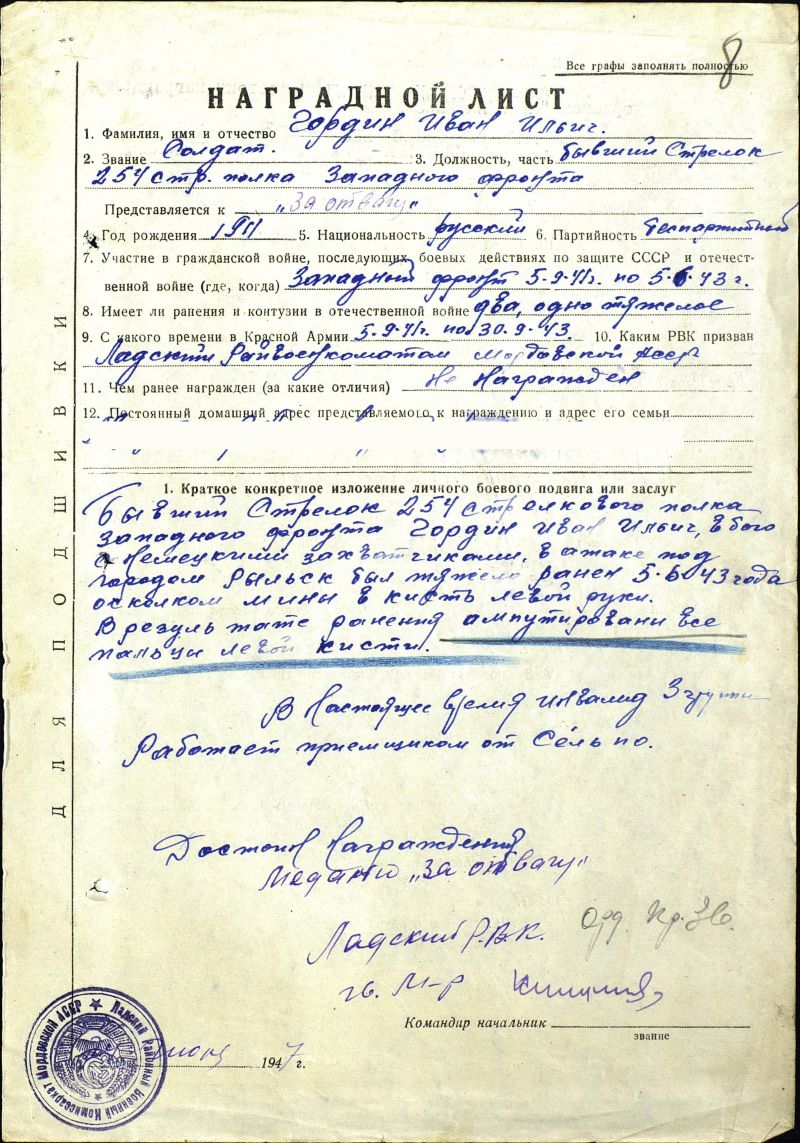 8
Все графы заполнять полностью
НАГРАДНОЙ ЛИСТ
1. Фамилия, имя и отчество Гордин Иван Ильич.
2. Звание Солдат. 3. Должность, часть бывший Стрелок
254 стр. полка Западного фронта
Представляется к "За отвагу"
4. Год рождения 1911 5. Национальность русский 6. Партийность беспартийный
7. Участие в гражданской войне, последующих боевых действиях по защите СССР и отечест-
венной войне (где, когда) Западный фронт 5-9-41г. по 5-6-43 г.
8. Имеет ли ранения и контузии в отечественной войне два, одно тяжелое
9. С какого времени в Красной Армии 5-9-41г. по 30-9-43 10. Каким РВК призван
Ладский Райвоенкоматом Мордовской АССР
11. Чем ранее награжден (за какие отличия) Не Награжден
12. Постоянный домашний адрес представляемого к награждению и адрес его семьи
1. Краткое конкретное изложение личного боевого подвига или заслуг
Бывший Стрелок 254 стрелкового полка
Западного фронта Гордин Иван Ильич, в бою
с Немецкими захватчиками, в атаке под
городом Рыльск был тяжело ранен 5-6-43 года
осколком мины в кисть левой руки.
В результате ранения ампутировани все
пальцы левой кисти.
В Настоящее время инвалид 3 группы
Работает приемщиком от Сельпо.
Достоин Награждения
Медалью "За отвагу"
Орд. Кр. Зв.
Ладский Р.В.К.
гв. М-р
Командир начальник
звание
июня 1947 г.
Ладский Районный Военный Комиссариат Мордовской АССР
ДЛЯ ПОДШИВКИ